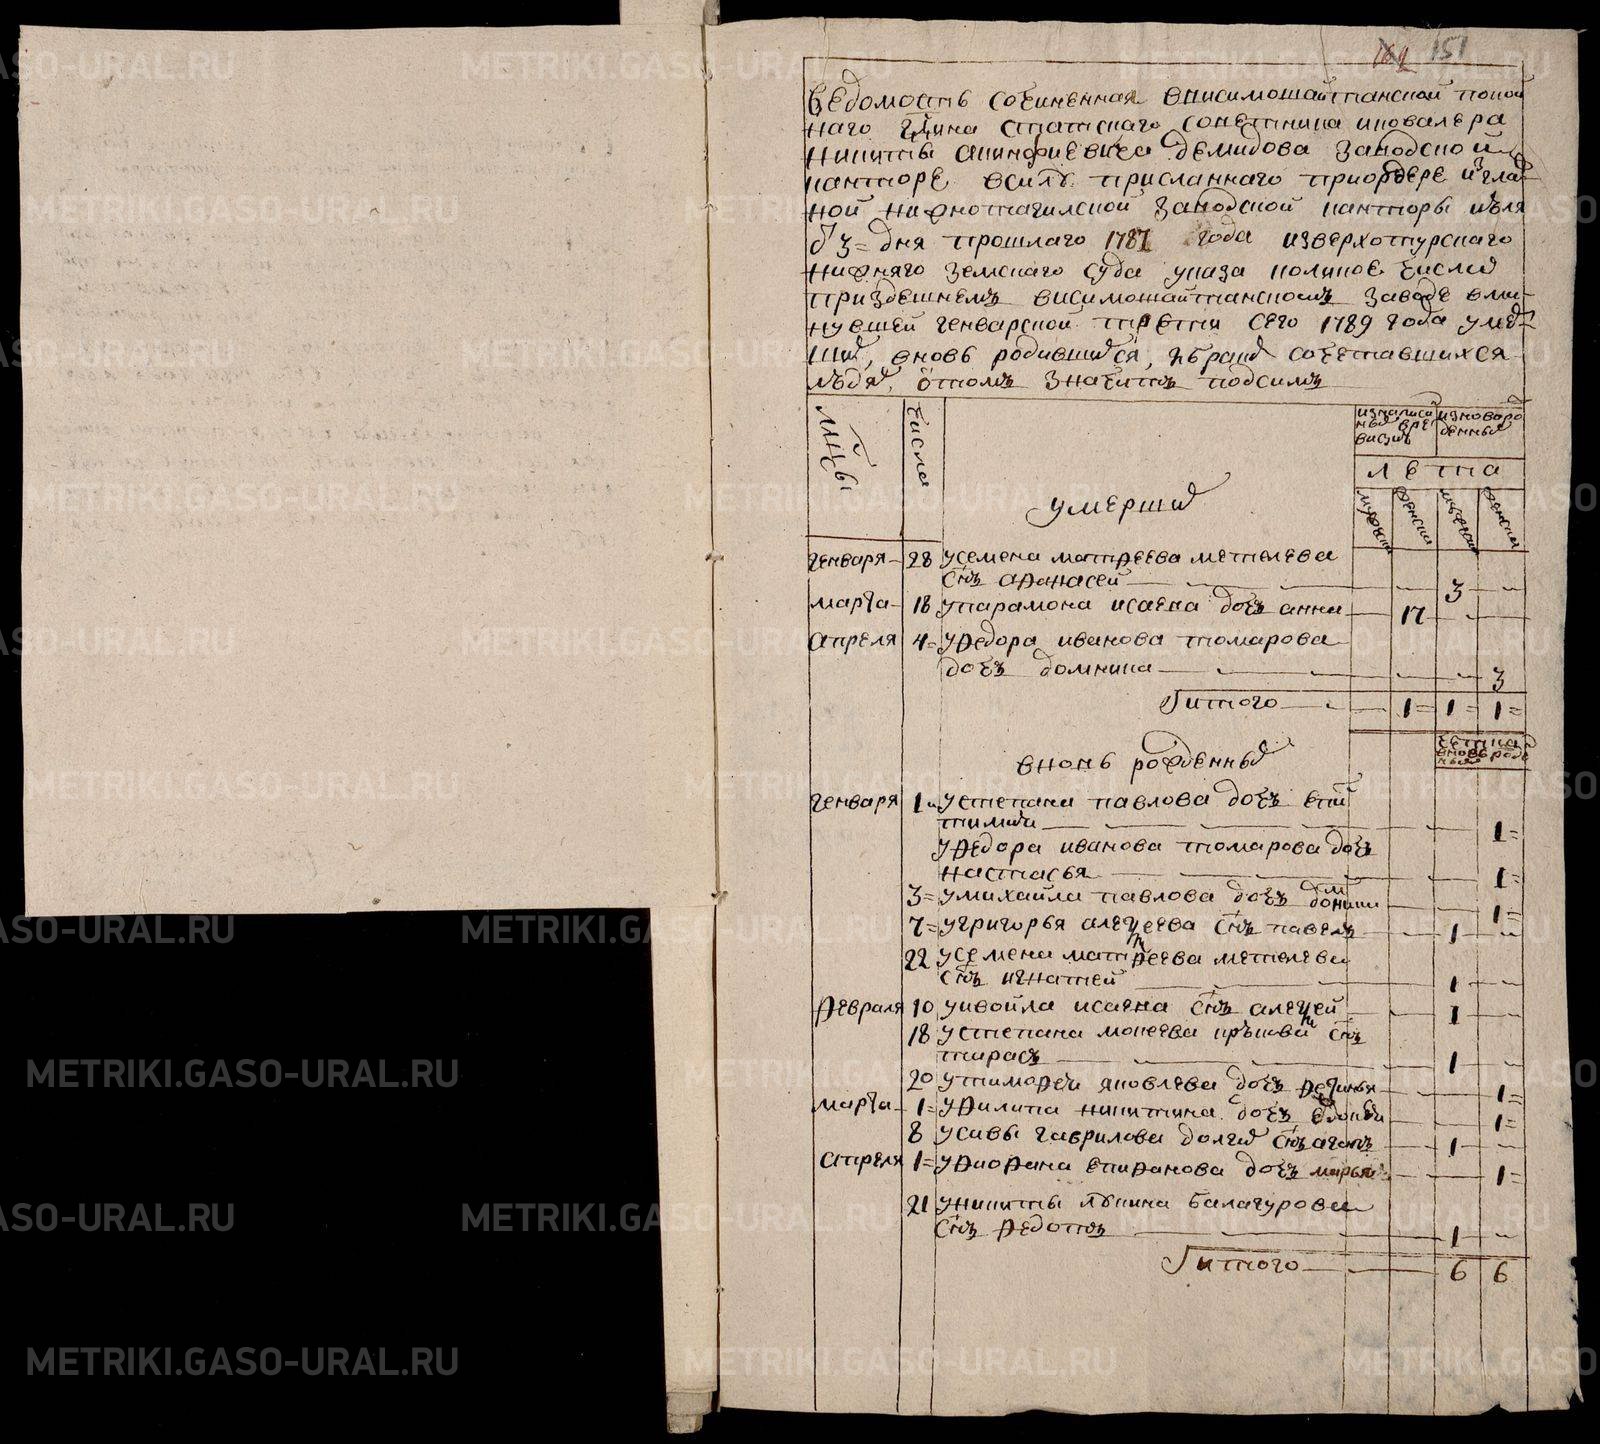 151
ведомость сочиненная ввисимошайтанской покой
наго гдина статскаго советника иковалера
никиты акинфиевича демидова заводской
канторе всилу присланнаго приордере изглав
ной нижнотагилской заводской канторы июля
дня прошлаго 1787 года изверхотурскаго
нижняго земскаго суда указа коликое число
приздешнемъ висимошайтанскомъ заводе вми
нувшей генварской трети сего 1789 года умер
ших, вновь родившихся, ибраком сочетавшихся
людях, отомъ значитъ подсимъ
мцы
числа
умершия
лета
мужеска
женска
мужеска
женска
генваря 28 усемена матфеева метелева
снъ афонасей 3
марта 18 упарамона исаева дочь анна 17
апреля 4 уфедора иванова комарова
дочь домника 3
итого 1 1 1
вновь рожденныя
генваря 1 устепана павлова дочь
уфедора иванова комарова дочь
настасья 1
3 умихайла павлова дочь 1
7 угригорья алексеева снъ павелъ 1
22 усемена матфеева метелева
снъ игнатей 1
февраля 10 исаева снъ алексей 1
18 устепана мокеева снъ
тарасъ 1
20 утимофея яковлева дочь 1
марта 1 уфилипа никитина дочь 1
8 усавы гаврилова снъ 1
апреля 1 дочь марья 1
21 уникиты балагурова
снъ федотъ 1
итого 6 6
METRIKI.GASO-URAL.RU